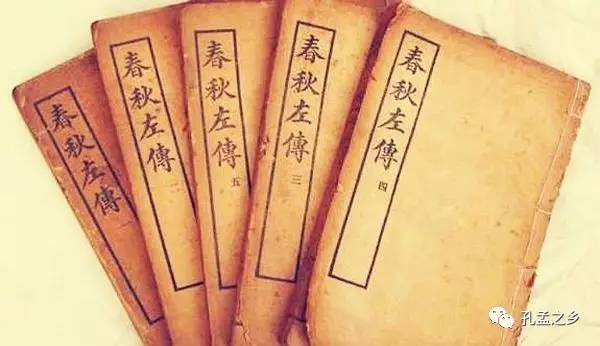 春秋左傳
春秋左傳
二
春秋左傳
五
春秋左傳
三
春秋左傳
四
孔孟之乡